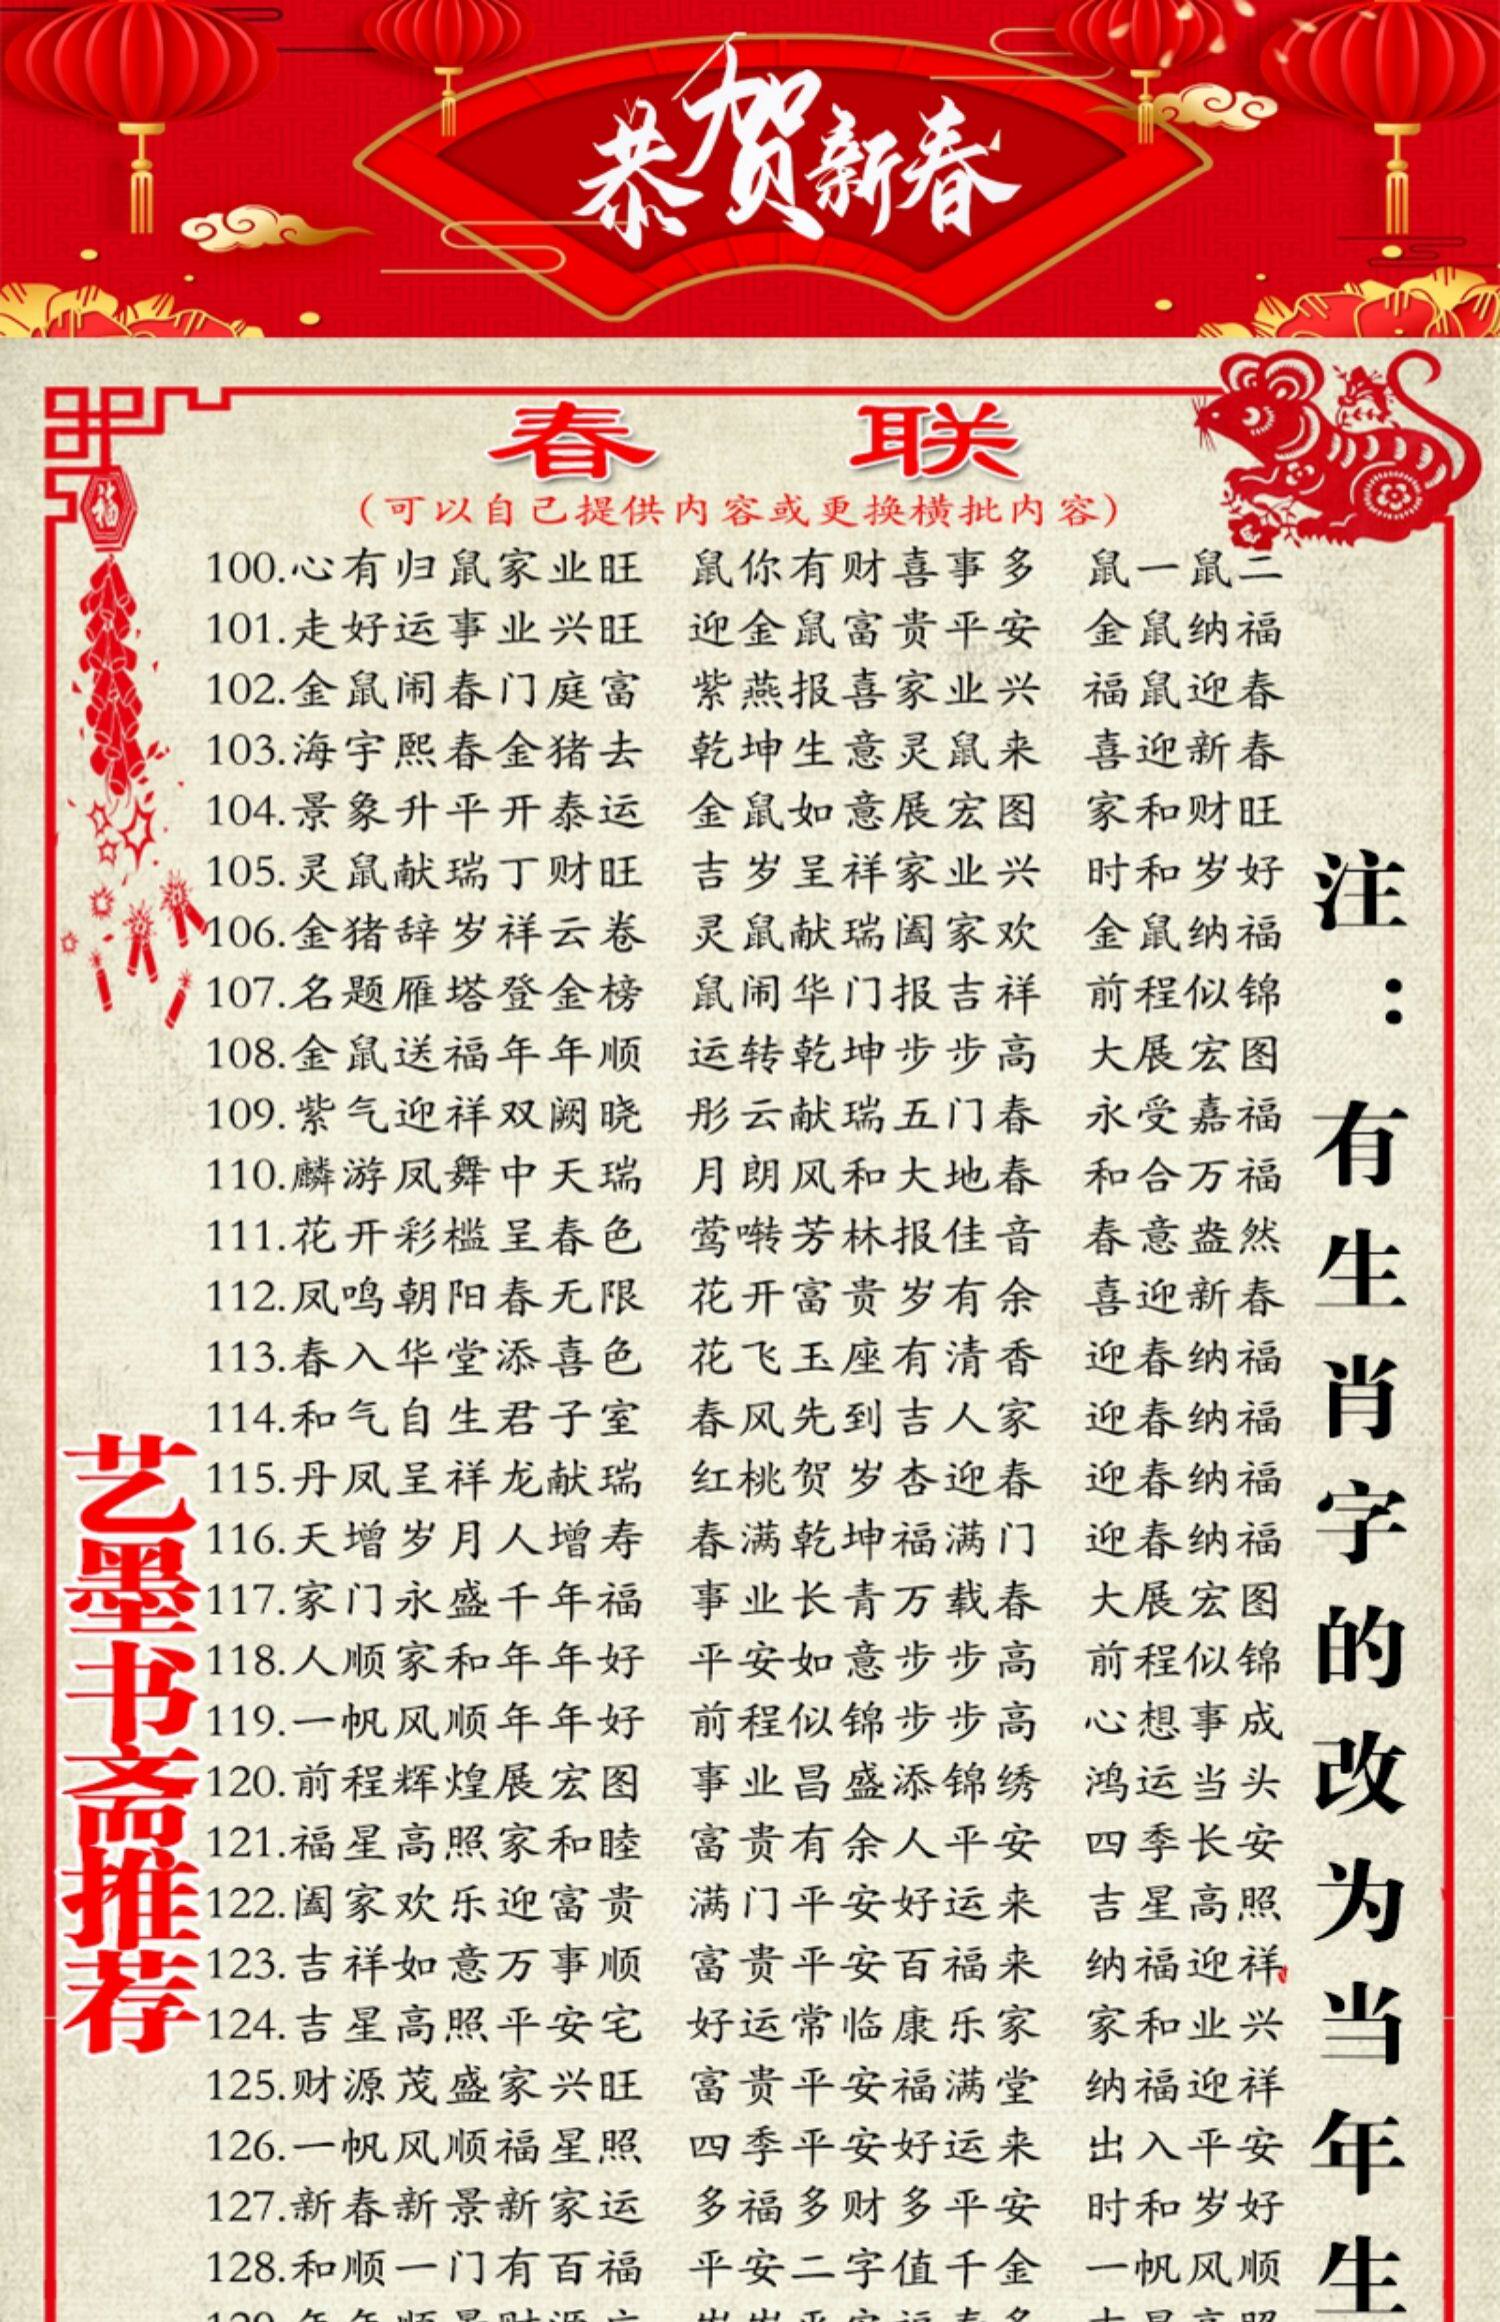 恭贺新春
春 联
福
(可以自己提供内容或更换横批内容)
100.心有归鼠家业旺 鼠你有财喜事多 鼠一鼠二
101.走好运事业兴旺 迎金鼠富贵平安 金鼠纳福
102.金鼠闹春门庭富 紫燕报喜家业兴 福鼠迎春
103.海宇熙春金猪去 乾坤生意灵鼠来 喜迎新春
104.景象升平开泰运 金鼠如意展宏图 家和财旺
105.灵鼠献瑞丁财旺 吉岁呈祥家业兴 时和岁好
106.金猪辞岁祥云卷 灵鼠献瑞阖家欢 金鼠纳福
107.名题雁塔登金榜 鼠闹华门报吉祥 前程似锦
108.金鼠送福年年顺 运转乾坤步步高 大展宏图
109.紫气迎祥双阙晓 彤云献瑞五门春 永受嘉福
110.麟游凤舞中天瑞 月朗风和大地春 和合万福
111.花开彩槛呈春色 莺啭芳林报佳音 春意盎然
112.凤鸣朝阳春无限 花开富贵岁有余 喜迎新春
113.春入华堂添喜色 花飞玉座有清香 迎春纳福
114.和气自生君子室 春风先到吉人家 迎春纳福
115.丹凤呈祥龙献瑞 红桃贺岁杏迎春 迎春纳福
116.天增岁月人增寿 春满乾坤福满门 迎春纳福
117.家门永盛千年福 事业长青万载春 大展宏图
118.人顺家和年年好 平安如意步步高 前程似锦
119.一帆风顺年年好 前程似锦步步高 心想事成
120.前程辉煌展宏图 事业昌盛添锦绣 鸿运当头
121.福星高照家和睦 富贵有余人平安 四季长安
122.阖家欢乐迎富贵 满门平安好运来 吉星高照
123.吉祥如意万事顺 富贵平安百福来 纳福迎祥
124.吉星高照平安宅 好运常临康乐家 家和业兴
125.财源茂盛家兴旺 富贵平安福满堂 纳福迎祥
126.一帆风顺福星照 四季平安好运来 出入平安
127.新春新景新家运 多福多财多平安 时和岁好
128.和顺一门有百福 平安二字值千金 一帆风顺
艺墨书斋推荐
注：有生肖字的改为当年生